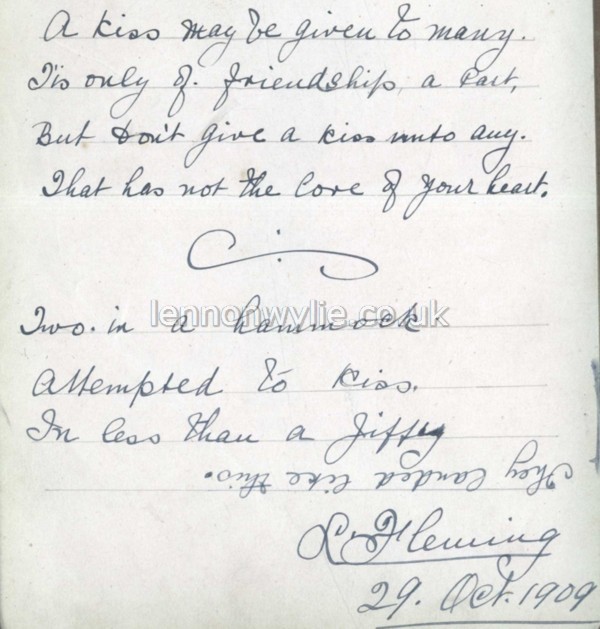 A kiss may be given to many.
Tis only of friendship, a part,
But don't give a kiss unto any.
That has not the love of your heart.
lennonwylie.co.uk
Two. in a hammock
Attempted to kiss.
In less than a jiffey
They landed like this.
L. Fleming
29. Oct. 1909